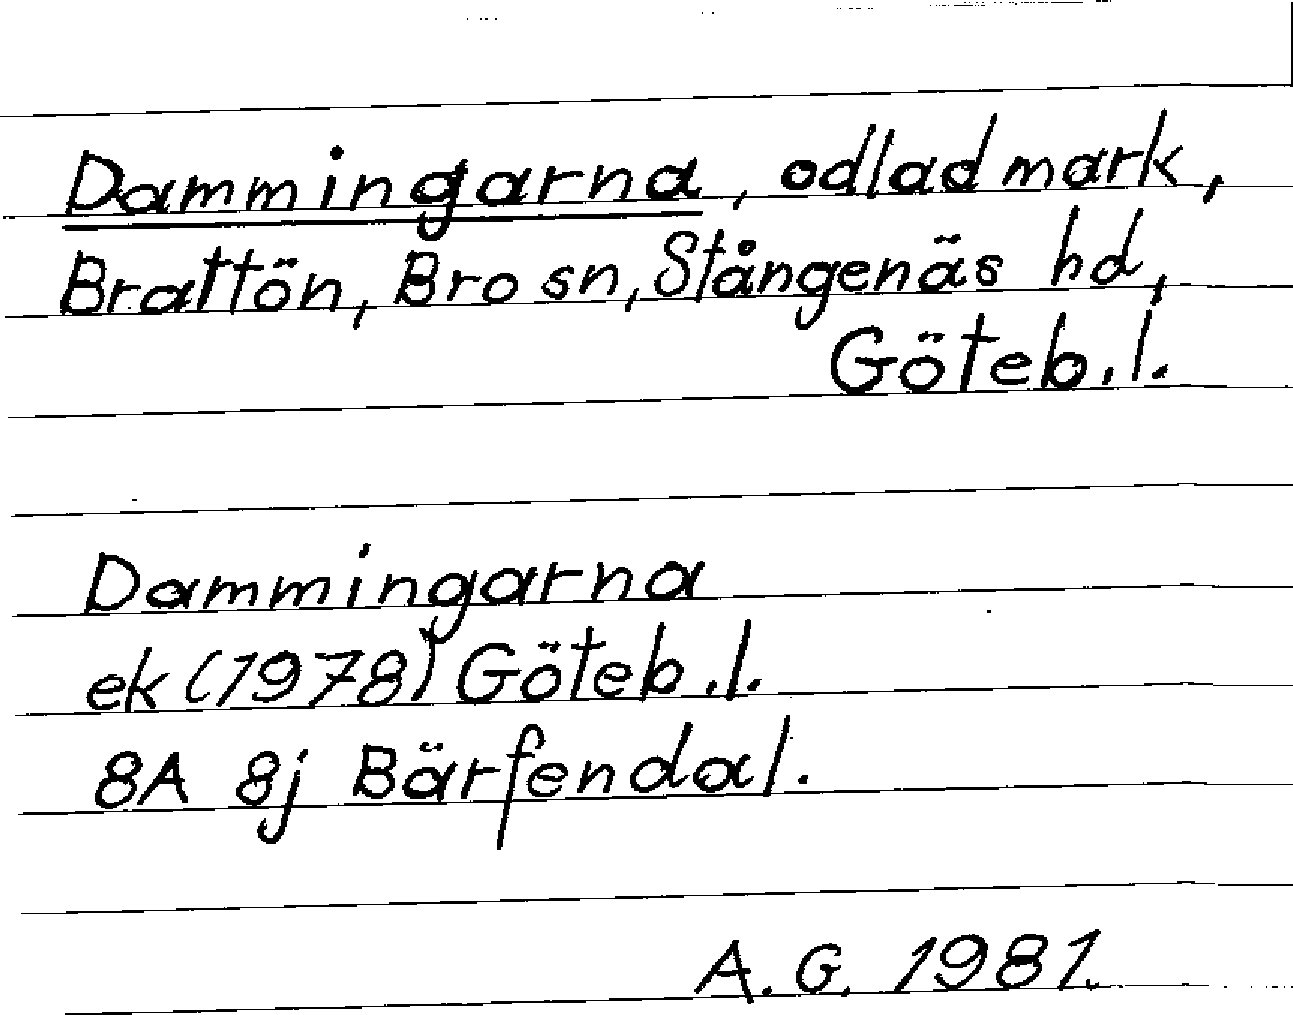 Dammingarna, odlad mark,
Brattön, Bro sn, Stångenäs hd,
Göteb. l.
Dammingarna
ek (1978) Göteb. l.
8A 8j Bärfendal.
A. G. 1981.